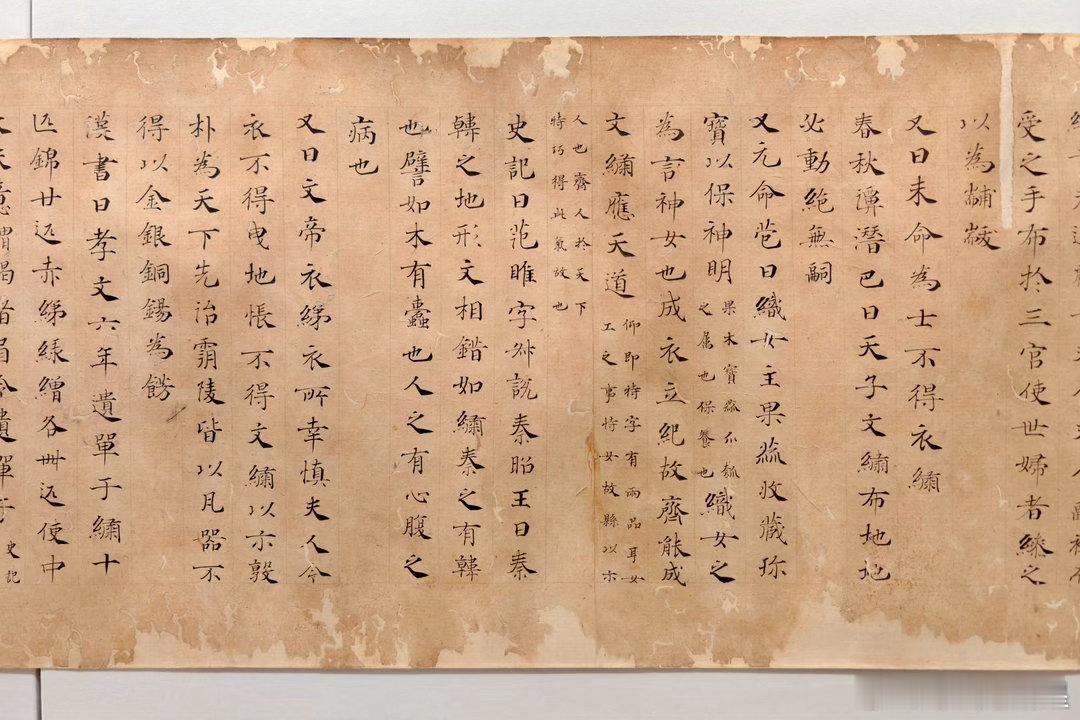 受之手布於三官使世婦者繰之
以為黼黻
又曰未命為士不得衣繡
春秋潭潛巴曰天子文繡布地地
必動絶無嗣
又元命苞曰織女主果蓏收藏珎
寶以保神明果木寶蓏爪瓠之属也保養也織女之
為言神女也成衣立紀故齊能成
文繡應天道仰即特字有兩品耳女工之事特女故縣以示
人也齊人於天下特巧得此氣故也
史記曰范睢字叔説秦昭王曰秦
韓之地形文相錯如繡秦之有韓
也譬如木有蠹也人之有心腹之
病也
又曰文帝衣綈衣所幸慎夫人令
衣不得曳地帳不得文繡以示敦
朴為天下先治霸陵皆以凡器不
得以金銀銅錫為餝
漢書曰孝文六年遺單于繡十
匹錦廿匹赤綈緑繒各卌匹使中
意謂謁者肩令遺單于史記